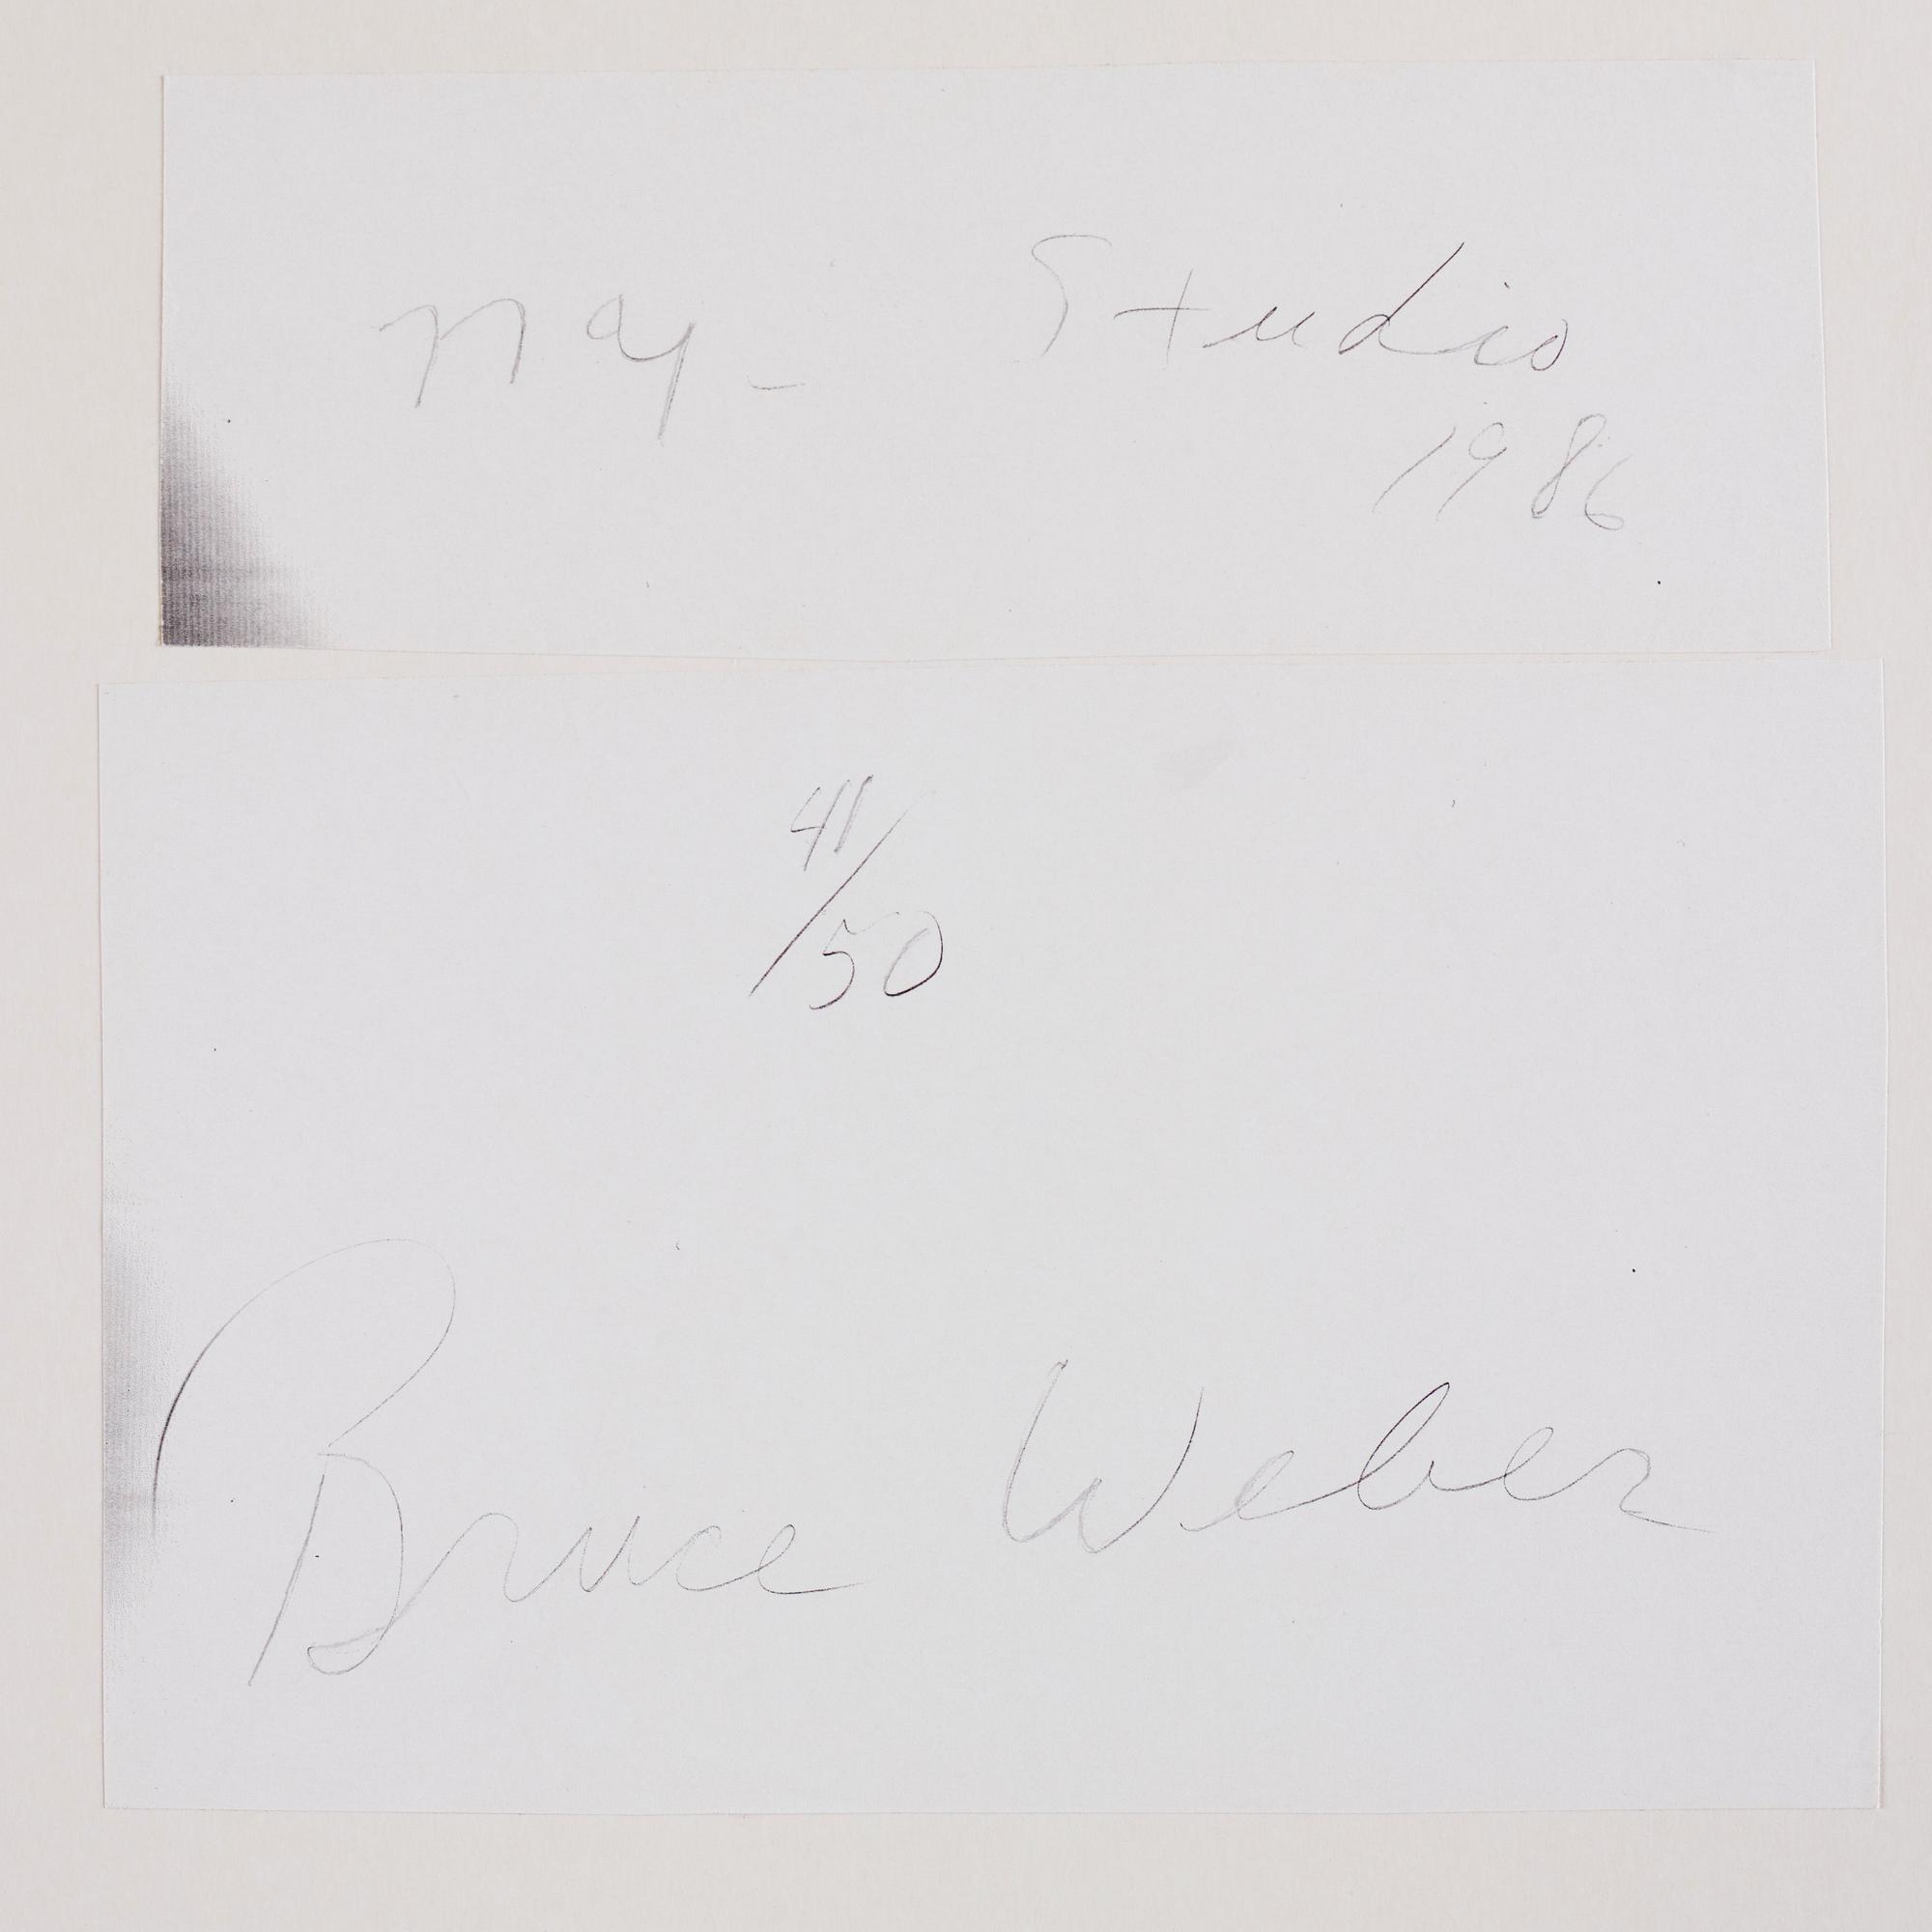 Studio
1986
41/50
Bruce Weber